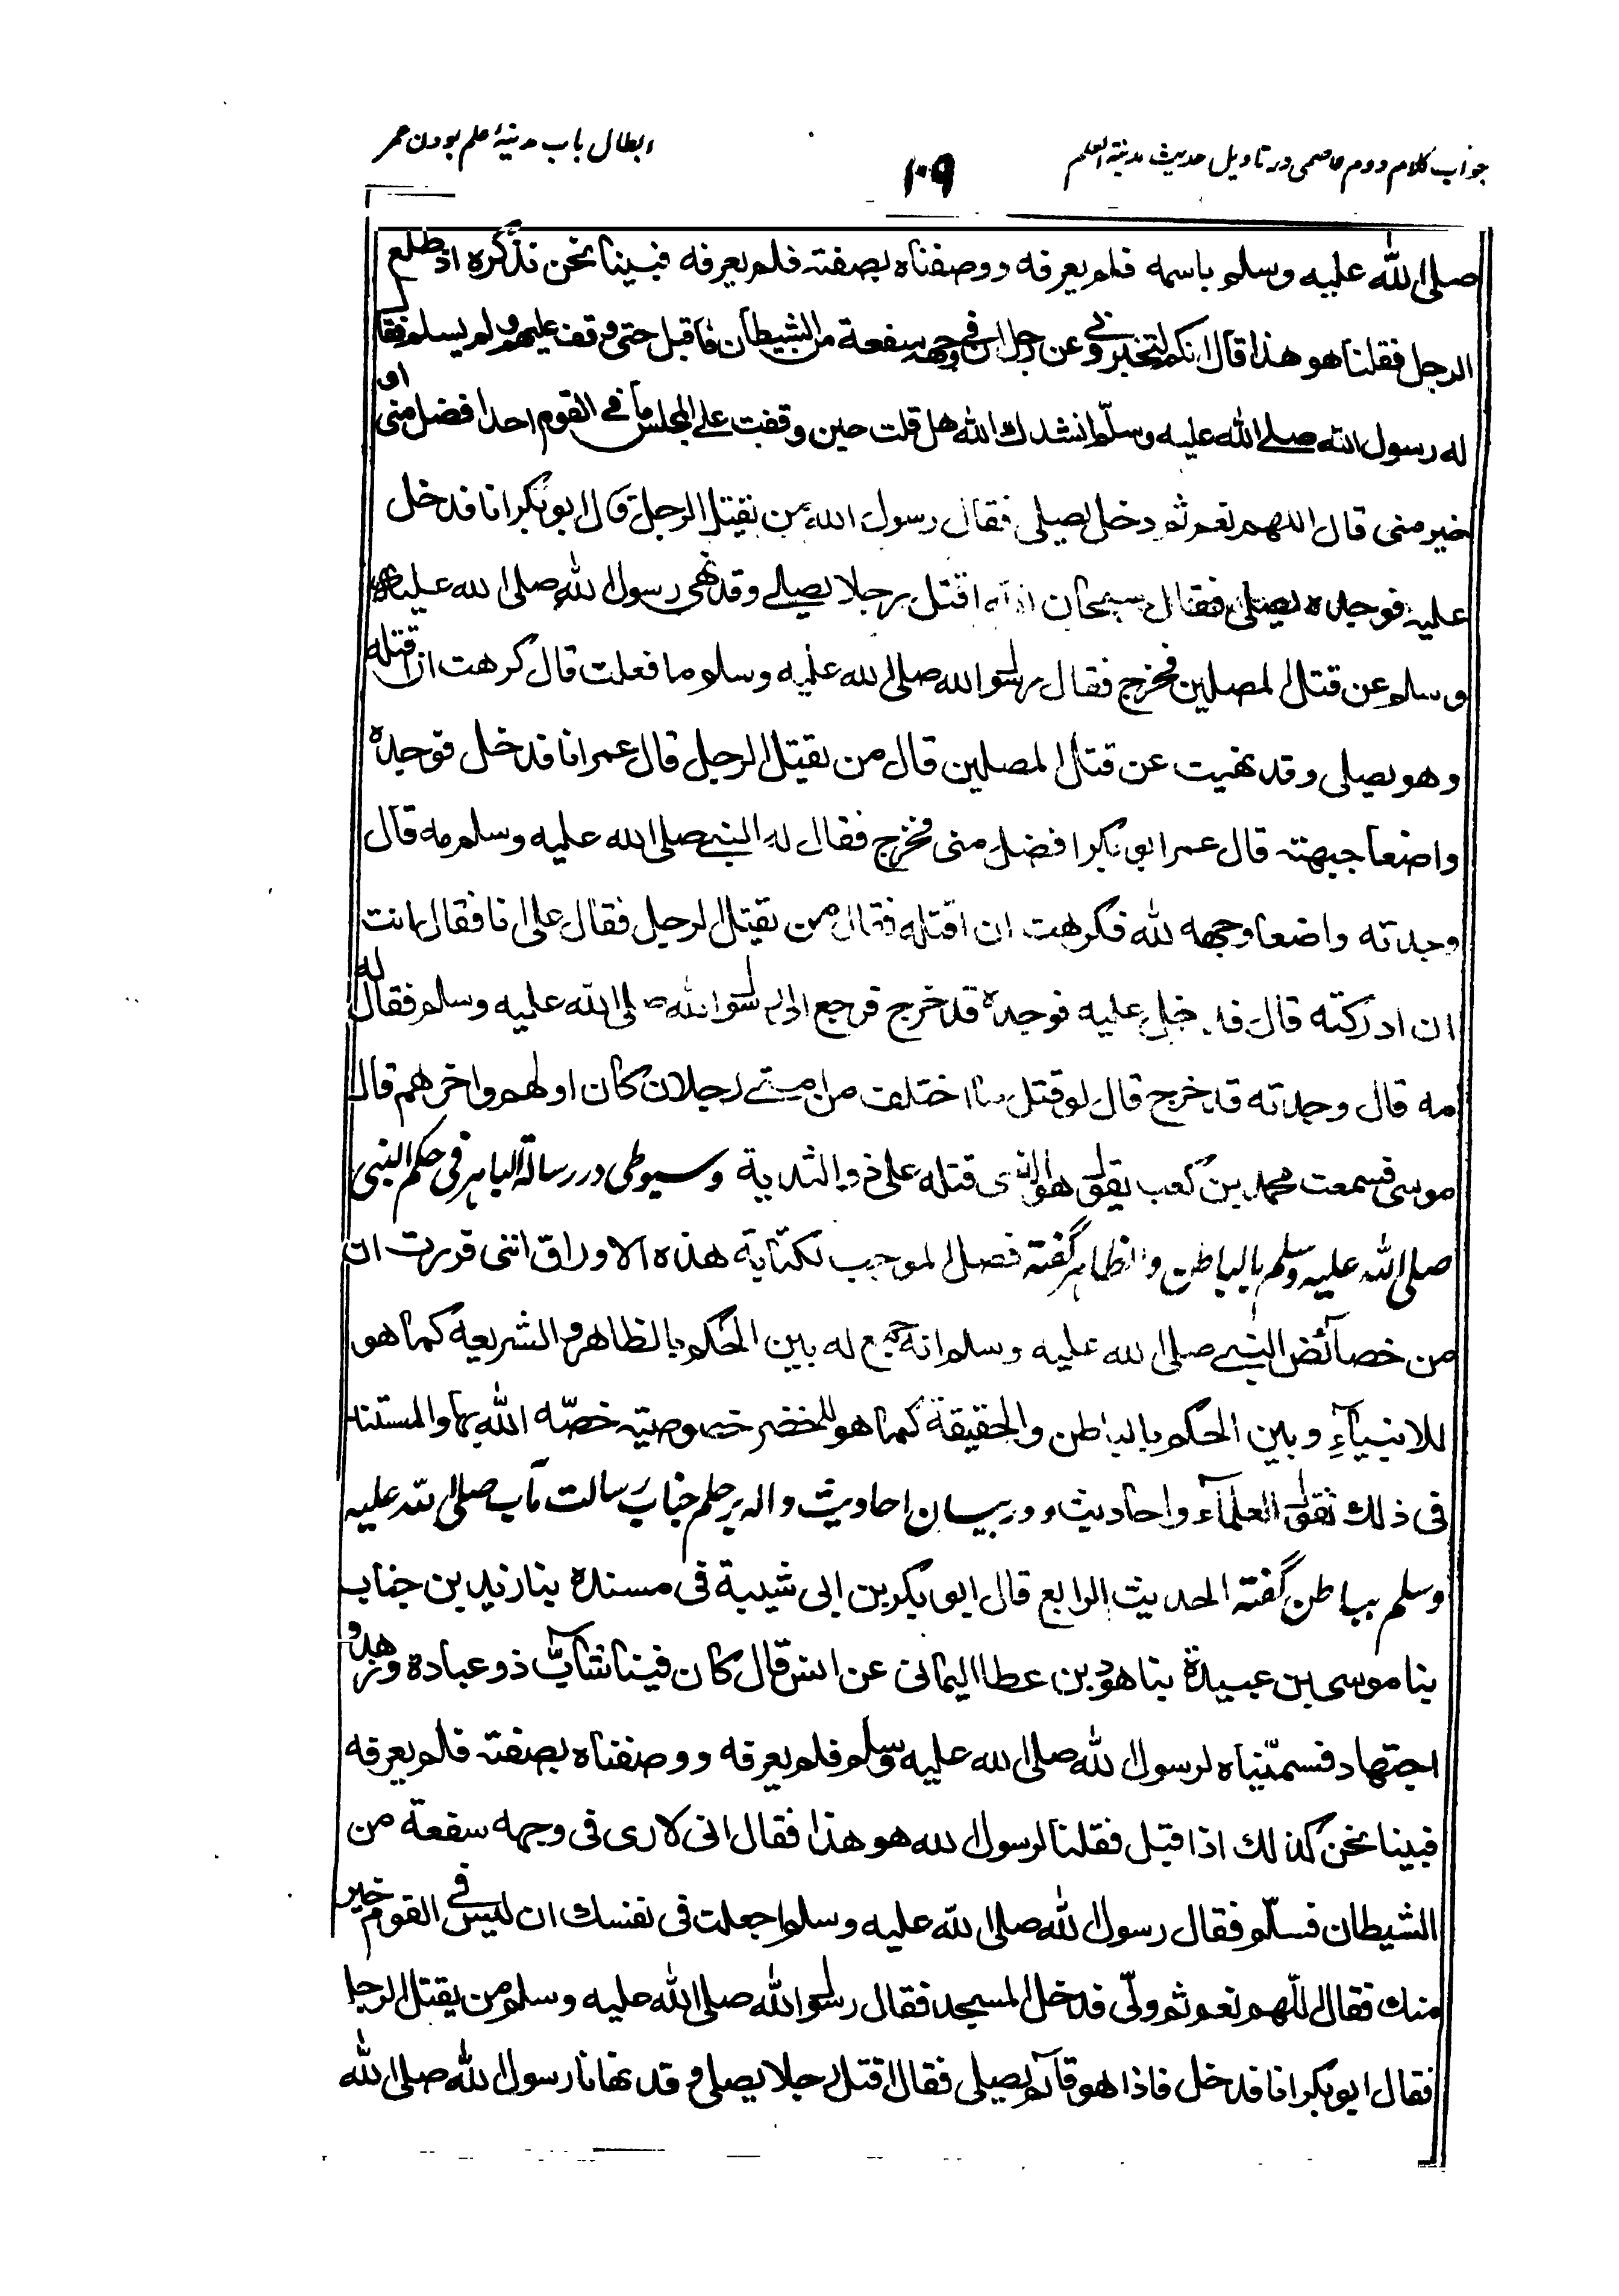 جواب كلام دوم عاصمى در تاويل حديث مدينة العلم
١٠٩
ابطال باب مدينۀ علم بودن عمر
صلى الله عليه وسلم باسمه فلم يعرفه ووصفناه بصفته فلم يعرفه فبينا نحن نذكره اذ طلع
الرجل فقلنا هو هذا قال انكم لتخبروني عن رجل ان في وجهه سفعة من الشيطان فاقبل حتى وقف عليهم ولم يسلم فقا
له رسول الله صلے الله عليه وسلّم انشدك الله هل قلت حين وقفت علے المجلس ما فے القوم احد افضل منى او
خير منى قال اللهم نعم ثم دخل يصلى فقال رسول الله من يقتل الرجل قال ابو بكر انا فدخل
عليه فوجده يصلى فقال سبحان الله اقتل رجلا يصلے وقد نهى رسول الله صلى الله عليه
وسلم عن قتل المصلين فخرج فقال رسول الله صلى الله عليه وسلم ما فعلت قال كرهت ان اقتله
وهو يصلى وقد نهيت عن قتل المصلين قال من يقتل الرجل قال عمر انا فدخل فوجده
واضعا جبهته قال عمر ابو بكر افضل منى فخرج فقال له النبے صلى الله عليه وسلم مه قال
وجدته واضعا وجهه لله فكرهت ان اقتله فقال من يقتل الرجل فقال على انا فقال انت
ان ادركته قال فدخل عليه فوجده قد خرج فرجع الى رسول الله صلى الله عليه وسلم فقال له
مه قال وجدته قد خرج قال لو قتل ما اختلف من امتے رجلان كان اولهم واخرهم قال
موسى فسمعت محمد بن كعب يقول هو الذى قتله على ذو الثدية وسيوطى در رسالة الباهر فى حكم النبى
صلى الله عليه وسلم بالباطن والظاهر گفته فصل الموجب لكتابة هذه الاوراق اننى قررت ان
من خصائص النبے صلى الله عليه وسلم انه جمع له بين الحكم بالظاهر والشريعه كما هو
للانبيآءِ وبين الحكم بالباطن والحقيقة كما هو للخضر خصوصية خصّه الله بها والمستند
فى ذلك نقول العلمآء واحاديث و در بيان احاديث داله بر حكم جناب رسالت مآب صلى الله عليه
وسلم بباطن گفته الحديث الرابع قال ابو بكر بن ابى شيبة فى مسنده ثنا زيد بن حباب
ثنا موسى بن عبيدة ثنا هود بن عطا اليمانى عن انس قال كان فينا شابّ ذو عبادة وزهد و
اجتهاد فسمّيناه لرسول الله صلى الله عليه وسلم فلم يعرفه ووصفناه بصفته فلم يعرفه
فبينا نحن كذلك اذ اقبل فقلنا لرسول الله هو هذا فقال انى لارى فى وجهه سفعة من
الشيطان فسلّم فقال رسول الله صلى الله عليه وسلم اجعلت فى نفسك ان ليس في القوم خير
منك فقال اللّهم نعم ثم ولّى فدخل المسجد فقال رسول الله صلى الله عليه وسلم من يقتل الرجل
فقال ابو بكر انا فدخل فاذا هو قآئم يصلى فقال اقتل رجلا يصلى وقد نهانا رسول الله صلى الله